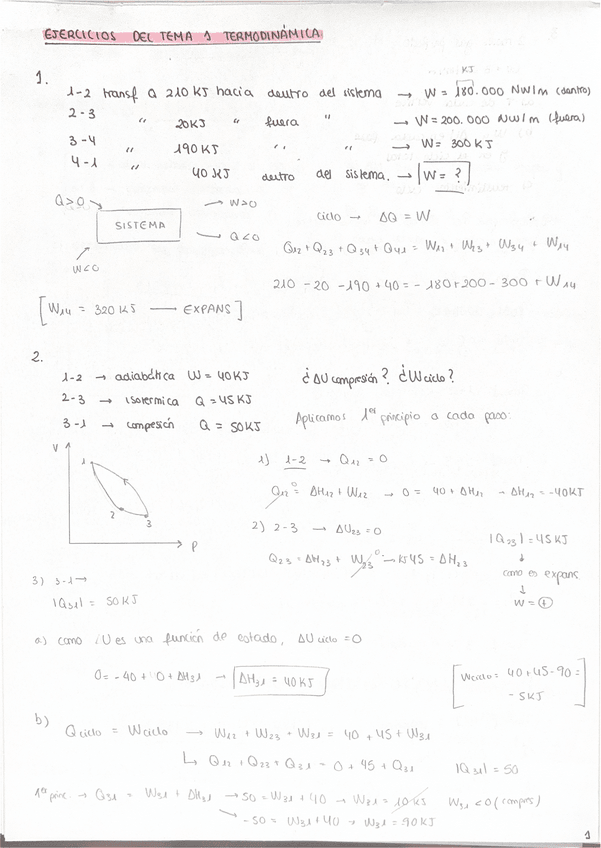 EJERCICIOS DEL TEMA 1 TERMODINÁMICA
1.
KJ
1-2 transf Q 210 KJ hacia dentro del sistema → W = 180.000 NW/m (dentro)
2-3 " 20KJ " fuera " → W = 200.000 NW/m (fuera)
3-4 " 190 KJ " " → W = 300 KJ
4-1 " 40 KJ dentro del sistema. → W = ?
Q>0 W>0
SISTEMA
Q<0
W<0
ciclo → ΔQ = W
Q12 + Q23 + Q34 + Q41 = W12 + W23 + W34 + W14
210 - 20 - 190 + 40 = - 180 + 200 - 300 + W14
[W14 = 320 KJ — EXPANS]
2.
1-2 → adiabática W = 40 KJ ¿ΔU compresión? ¿W ciclo?
2-3 → isotermica Q = 45 KJ
3-1 → compesión Q = 50 KJ
Aplicamos 1er principio a cada paso:
V
1
2
3
P
1) 1-2 → Q12 = 0
Q12 = ΔH12 + W12 → 0 = 40 + ΔH12 → ΔH12 = -40KJ
0
2) 2-3 → ΔU23 = 0
Q23 = ΔH23 + W23 → KJ 45 = ΔH23
0
|Q23| = 45 KJ
↓
como es expans
↓
W = ⊕
3) 3-1 →
|Q31| = 50 KJ
a) como U es una función de estado, ΔU ciclo = 0
0 = -40 + 0 + ΔH31 → ΔH31 = 40 KJ
[Wciclo = 40 + 45 - 90 =
-5 KJ]
b)
Q ciclo = W ciclo → W12 + W23 + W31 = 40 + 45 + W31
↳ Q12 + Q23 + Q31 = 0 + 45 + Q31 |Q31| = 50
1er princ. → Q31 = W31 + ΔH31 → 50 = W31 + 40 → W31 = 10 KJ W31 < 0 (compres)
→ -50 = W31 + 40 → W31 = 90 KJ
1